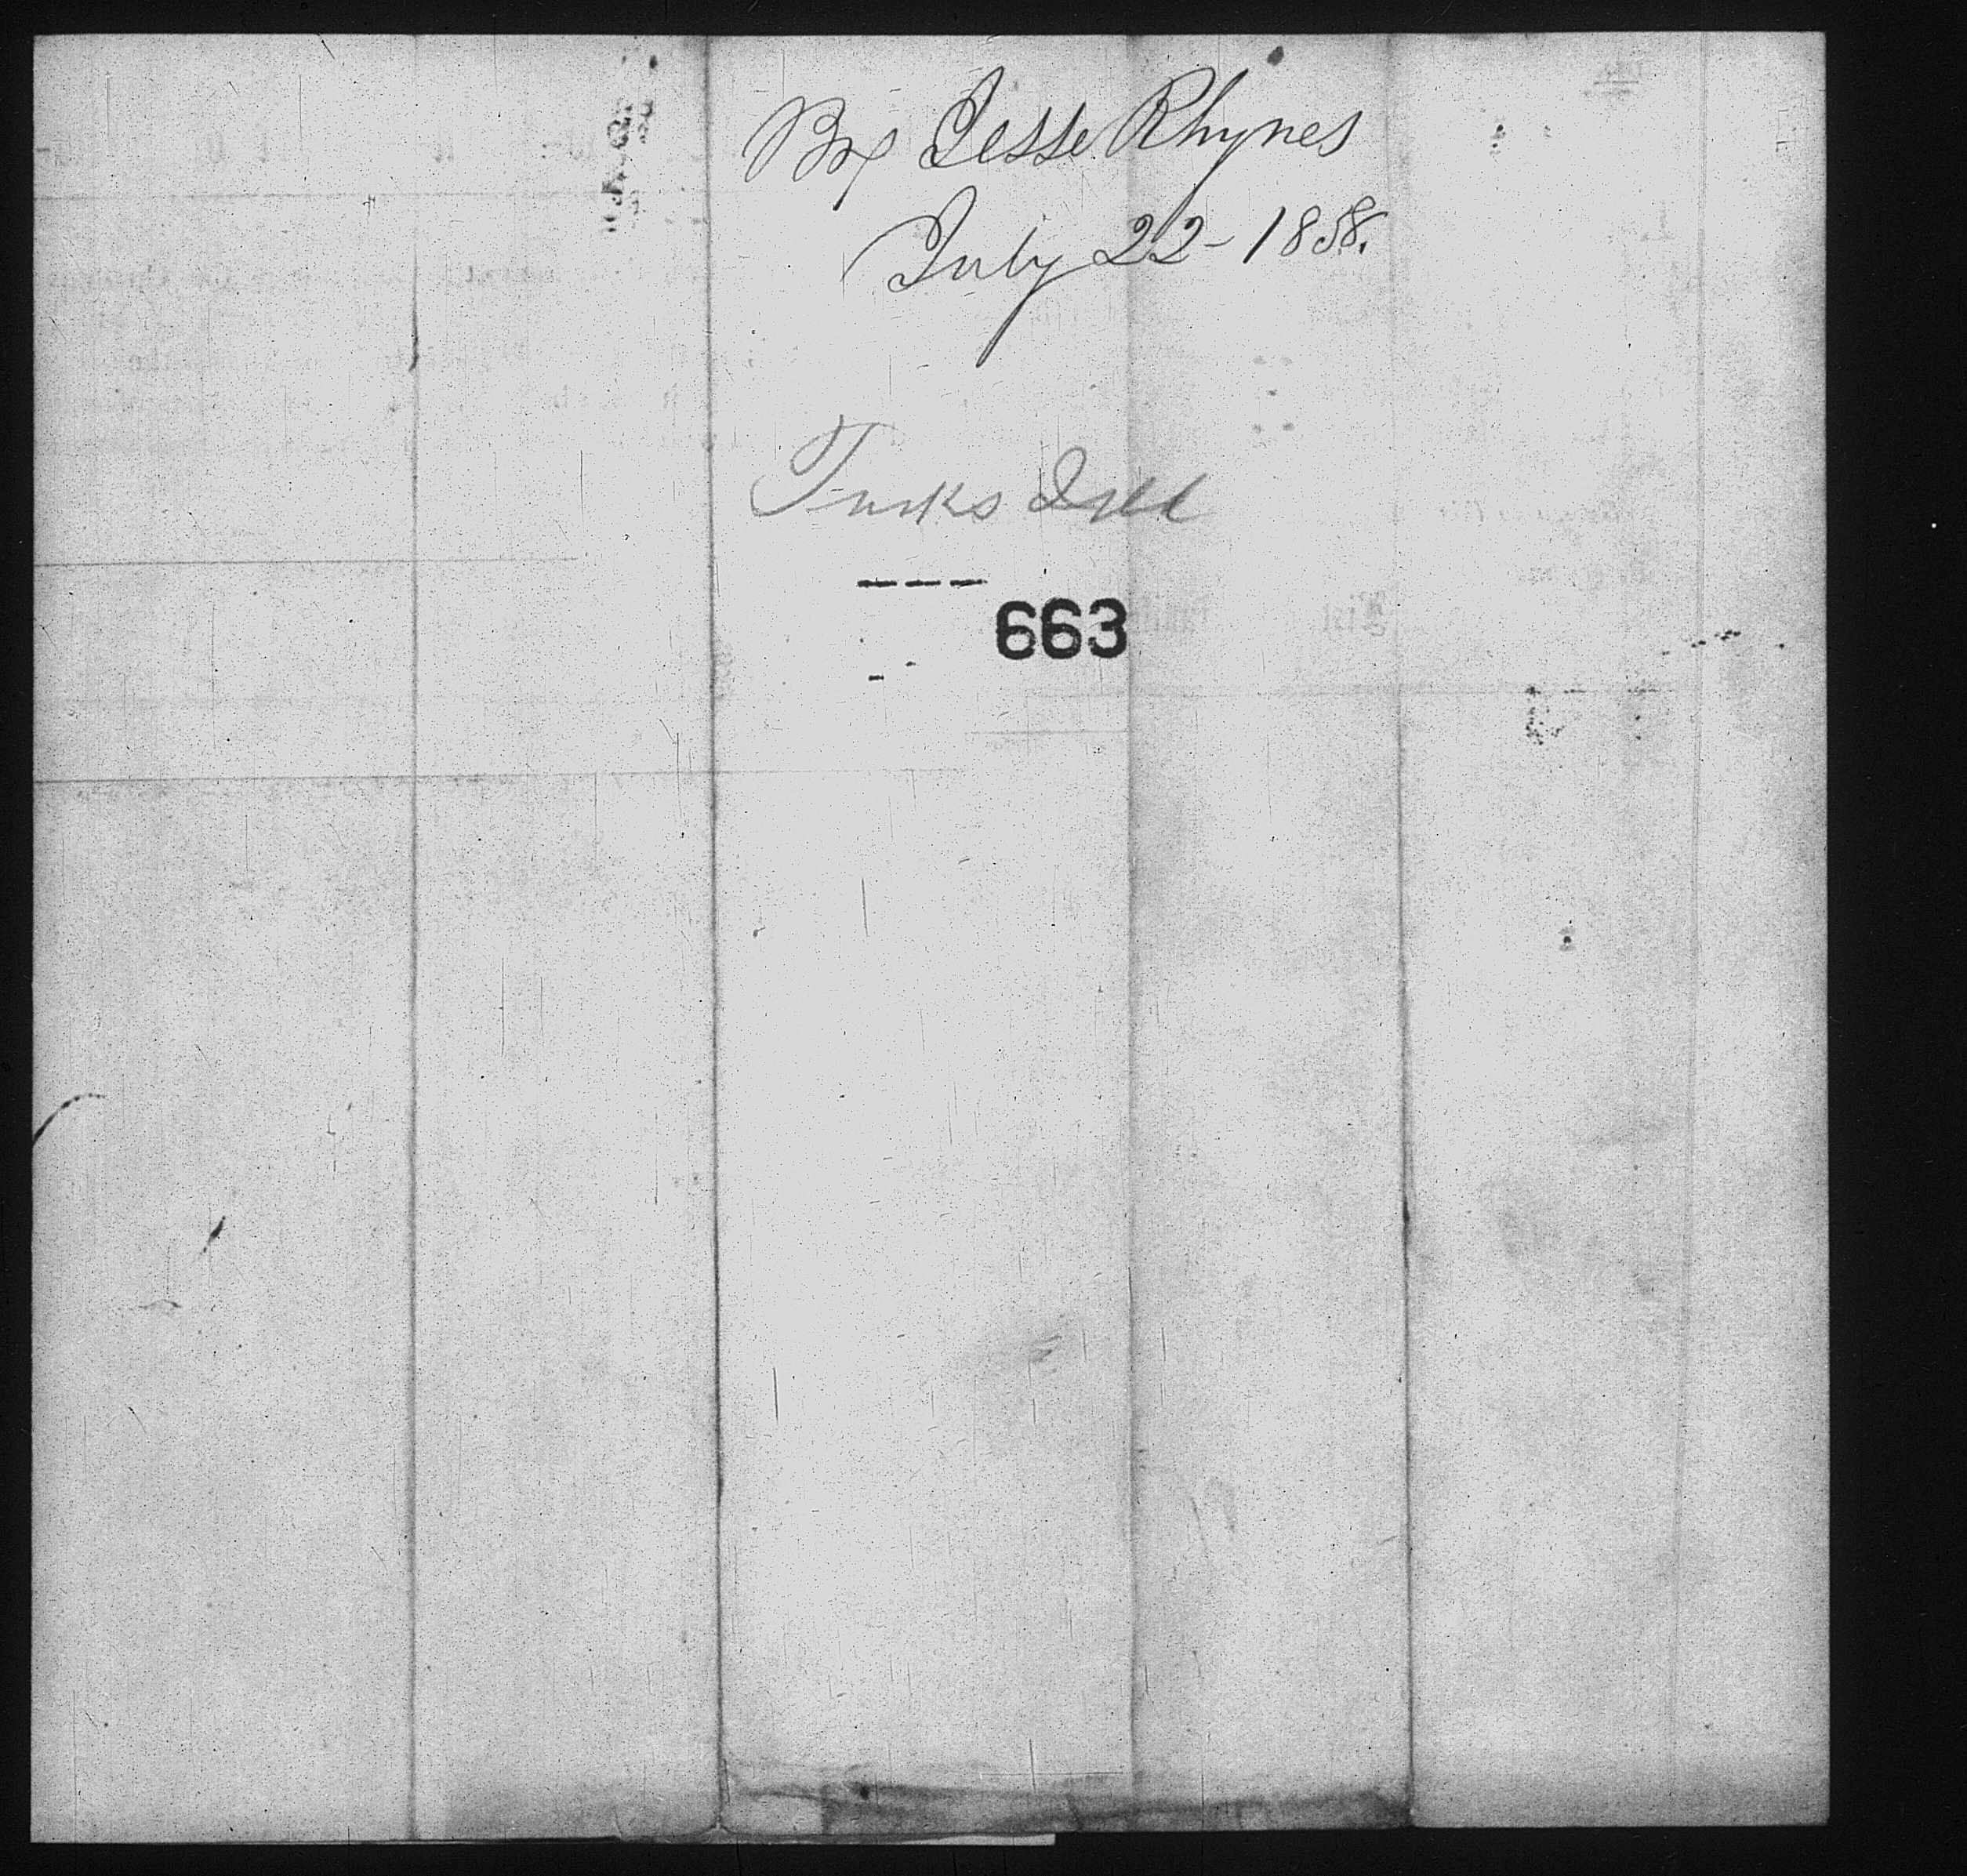 Brg Jesse Rhynes
July 22 - 1858.
Turks Isld
663